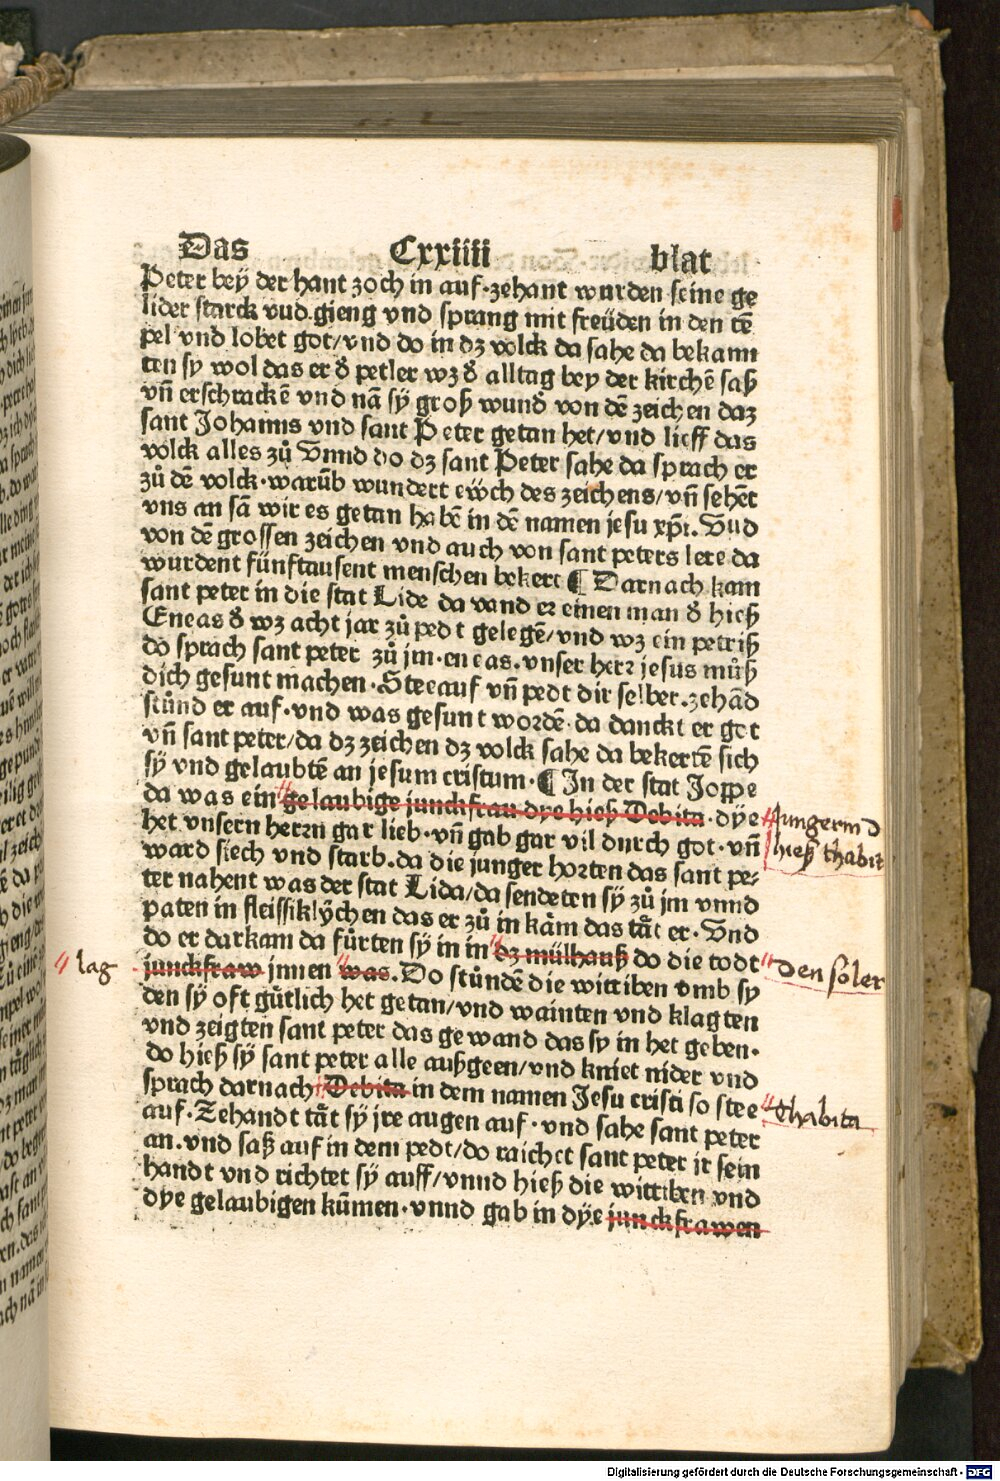 Das Cxxiiii blat
Peter beÿ der hant zoch in auf·zehant wurden seine ge
lider starck vud gieng vnd sprang mit freüden in den tē
pel vnd lobet got/vnd do in dz volck da sahe da bekann
ten sy wol das er d̕ petler wz d̕ alltag bey der kirchē saß
vn̄ erschrackē vnd nā sÿ groß wund̕ von dē zeichen daz
sant Johanns vnd sant Peter getan het/vnd lieff das
volck alles zů Vnnd do dz sant Peter sahe da sprach er
zů dē volck·warūb wundert eẅch des zeichens/vn̄ sehēt
vns an sā wir es getan habē in dē namen jesu xp̄i. Vud
von dē grossen zeichen vnd auch von sant peters lere da
wurdent fünftausent menschen bekert ¶ Darnach kam
sant peter in die stat Lide da vand er einen man d̕ hieß
Eneas d̕ wz acht jar zů pedt gelegē/vnd wz ein petriß
do sprach sant peter zů jm·eneas.vnser herr jesus můß
dich gesunt machen·Stee auf vn̄ pedt dir selber.zehād
stůnd er auf·vnd was gesunt wordē·da danckt er got
vn̄ sant peter/da dz zeichen dz volck sahe da bekertē sich
sÿ vnd gelaubtē an jesum cristum·¶ In der stat Joppe
da was ein gelaubige junckfrau dye hieß Debita·dÿe
Jungerin d
het vnsern herrn gar lieb·vn̄ gab gar vil durch got·vn̄
hieß thabit
ward siech vnd starb.da die junger horten das sant pe-
ter nahent was der stat Lida/da sendeten sÿ zů jm vnnd
paten in fleissiklÿchen das er zů in kåm das tåt er·Vnd
do er dar kam da fůrten sÿ in in dz mülhauß do die todt
den soler
lag
junckfraw jnnen was.Do stůndē die wittiben vmb sy
den sÿ oft gůtlich het getan/vnd wainten vnd klagten
vnd zeigten sant peter das gewand das sy in het geben·
do hieß sÿ sant peter alle außgeen/vnd kniet nider vnd
sprach darnach Debita in dem namen Jesu cristi so stee
thabita
auf·Zehandt tåt sÿ jre augen auf·vnd sahe sant peter
an·vnd saß auf in dem pedt/do raichet sant peter ir sein
handt vnd richtet sÿ auff/vnnd hieß die wittiben vnd
dye gelaubigen kūmen·vnnd gab in dÿe junckfrawen
Digitalisierung gefördert durch die Deutsche Forschungsgemeinschaft - DFG